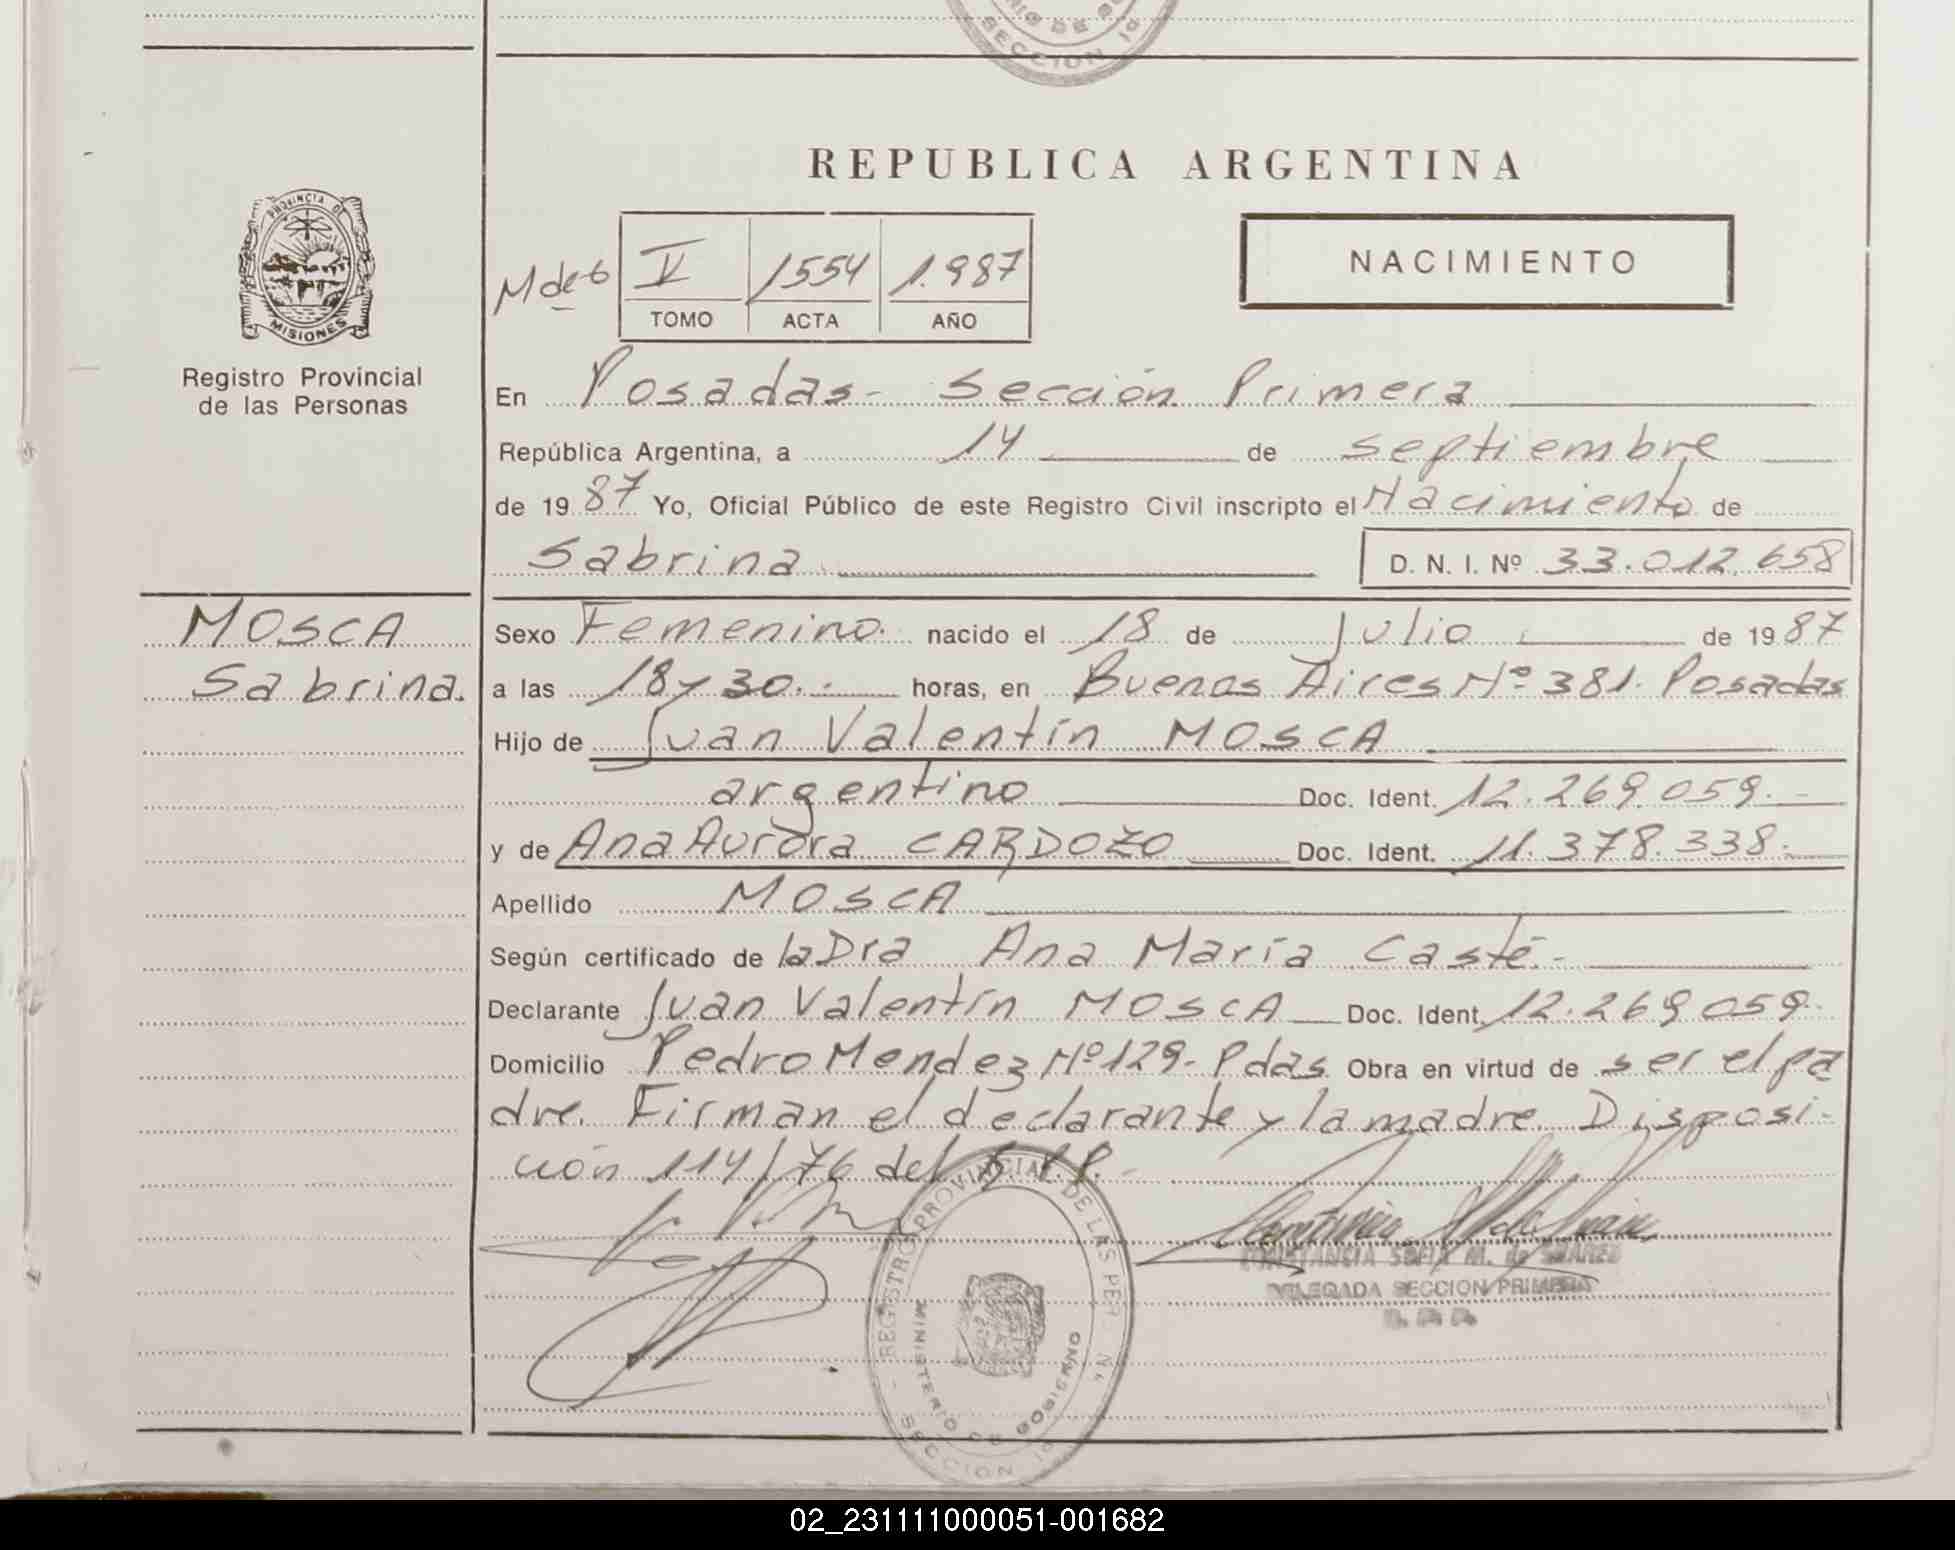 MIO DE GO
SECCION 1ª
REPUBLICA ARGENTINA
PROVINCIA D
MISIONES
Registro Provincial
de las Personas
M de 6
V 1554 1.987
TOMO ACTA AÑO
NACIMIENTO
En Posadas- Sección Primera
República Argentina, a 14 de septiembre
de 1987 Yo, Oficial Público de este Registro Civil inscripto el Nacimiento de
Sabrina D. N. I. Nº 33.012.658
MOSCA
Sabrina.
Sexo Femenino. nacido el 18 de Julio de 1987
a las 18 y 30.- horas, en Buenos Aires Nº 381. Posadas
Hijo de Juan Valentín MOSCA
argentino Doc. Ident. 12.269.059.-
y de Ana Aurora CARDOZO Doc. Ident. 11.378.338.-
Apellido MOSCA
Según certificado de la Dra Ana María Casté.-
Declarante Juan Valentín MOSCA Doc. Ident. 12.269.059.
Domicilio Pedro Mendez Nº 129- Pdas. Obra en virtud de ser el pa
dre. Firman el declarante y la madre. Disposi-
ción 114/76 del R.P.P.-
REGISTRO PROVINCIAL DE LAS PER
MINISTERIO DE GOBIERNO
SECCION 1ª
CONSTANCIA SOFIA M. de SUAREZ
DELEGADA SECCION PRIMERA
02_231111000051-001682